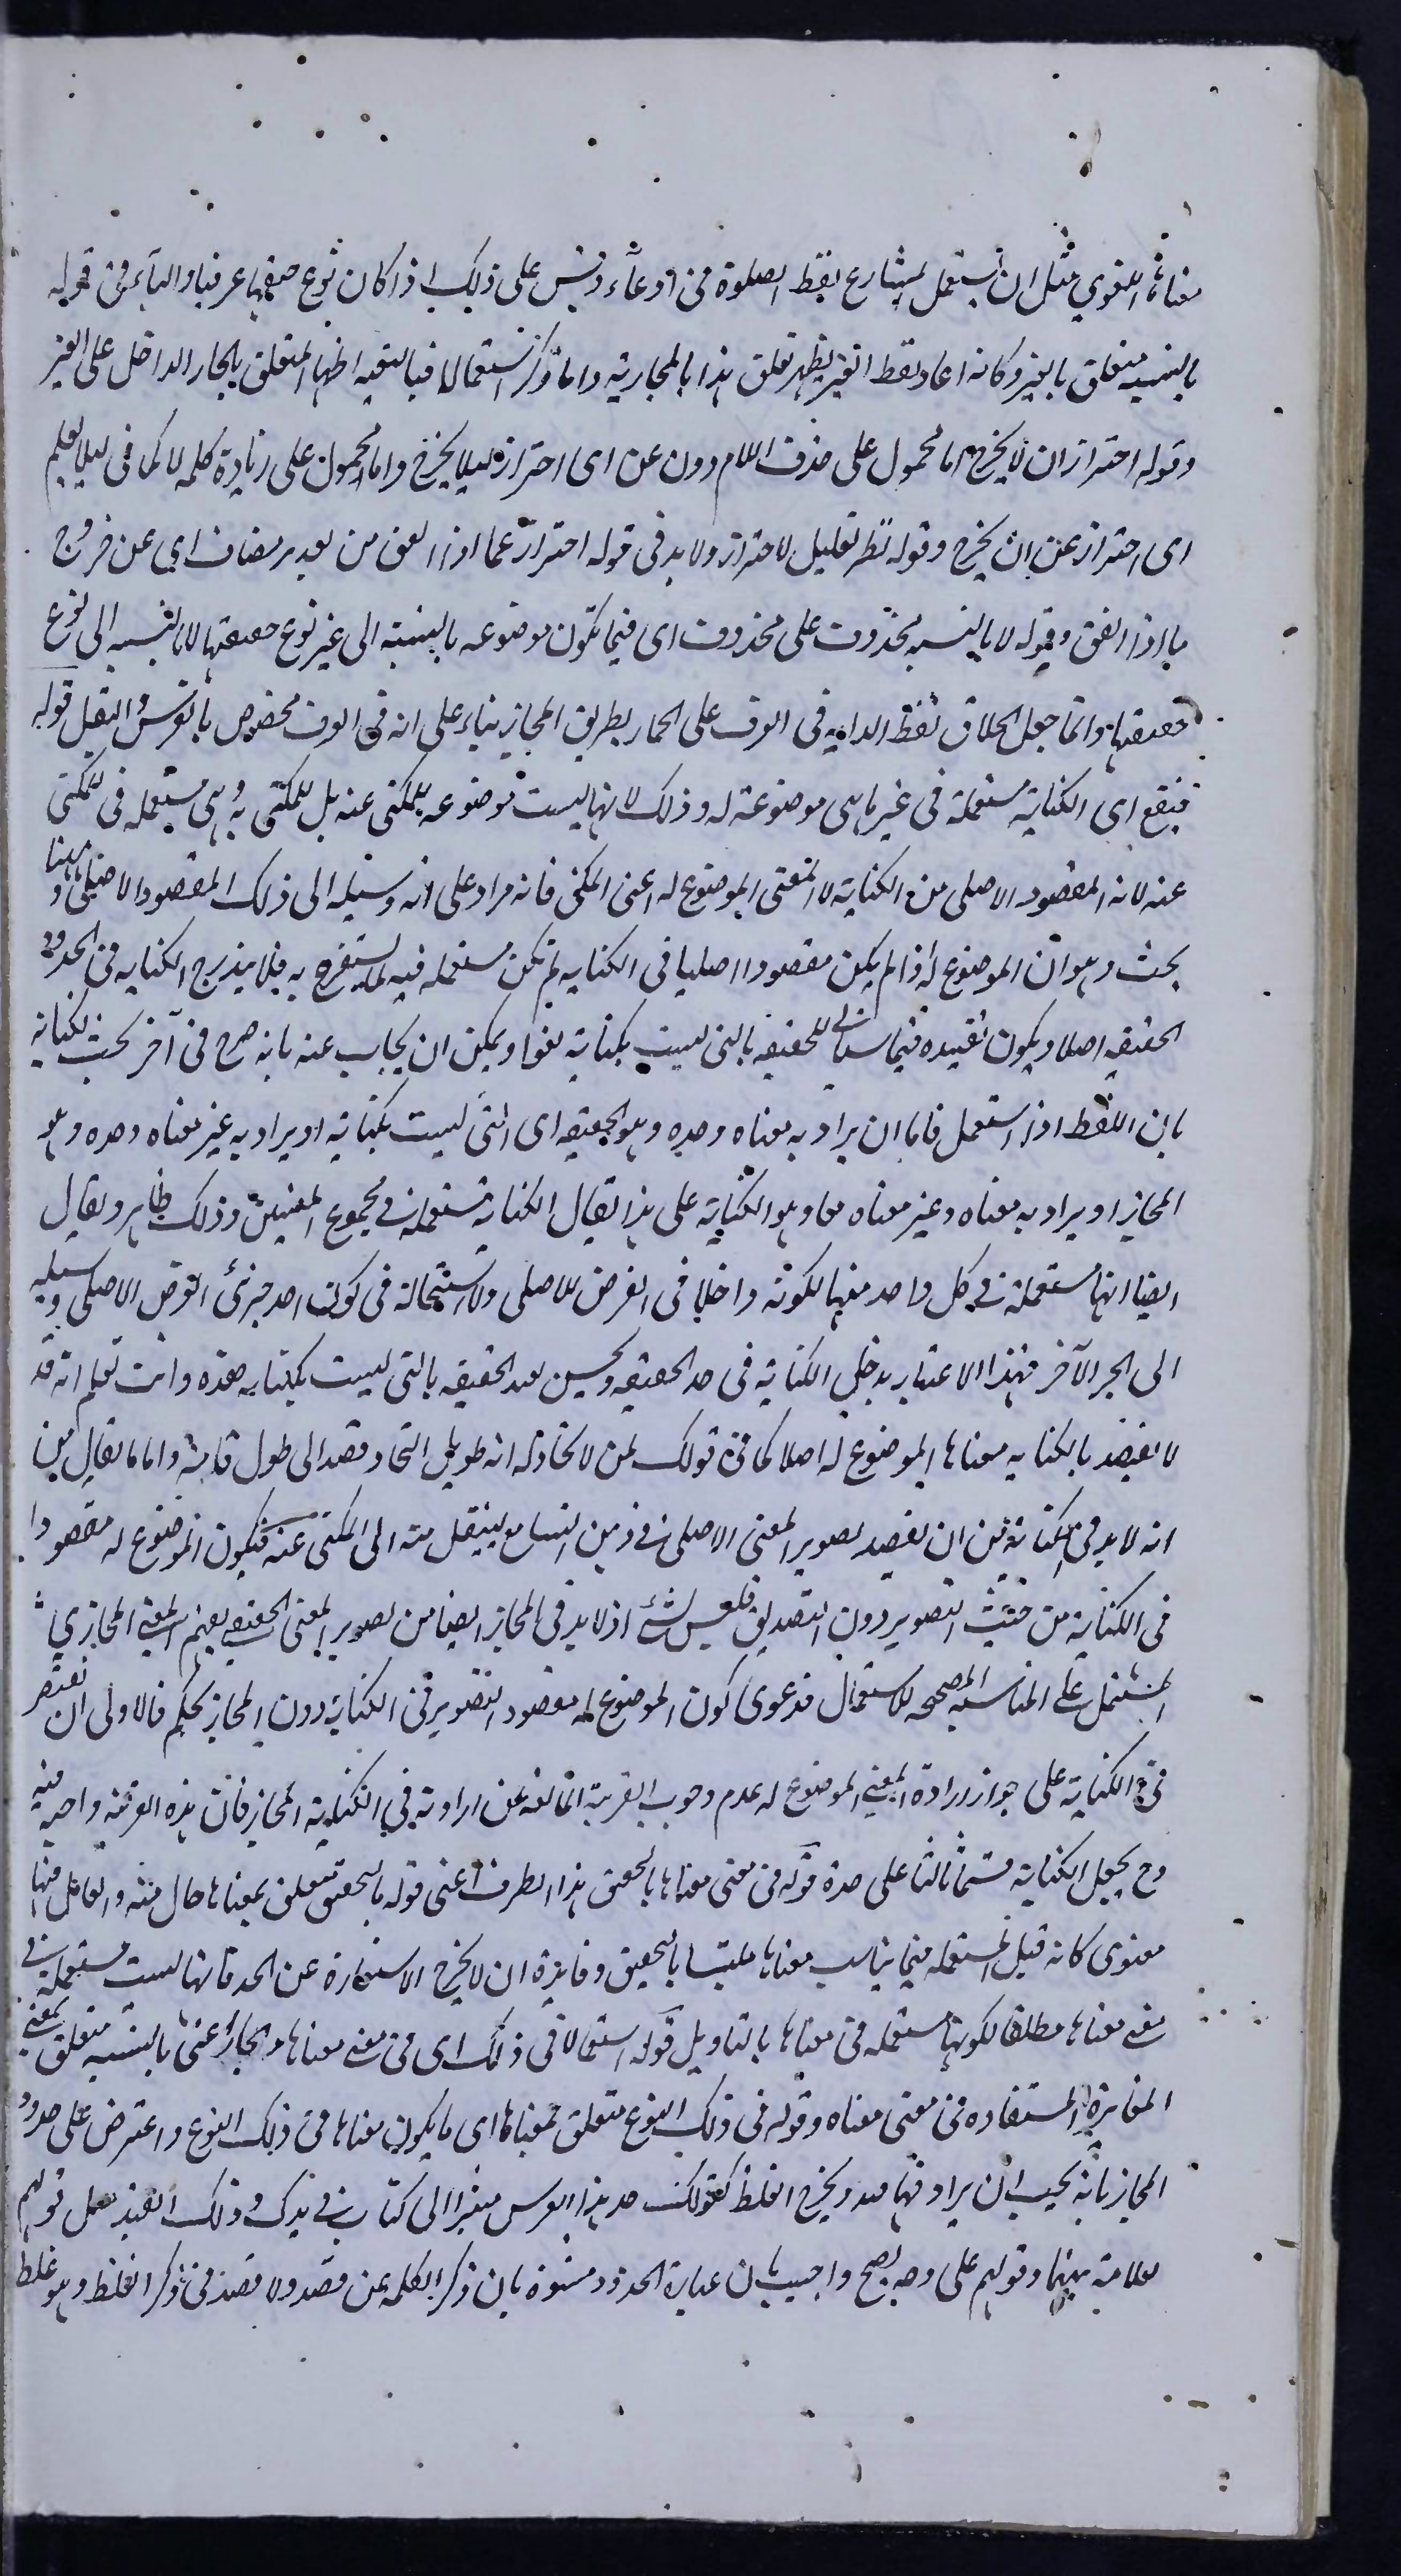 معناها اللغوي مثل ان يستعمل الشارع لفظ الصلوة في الدعاء وقس على ذلك اذا كان نوع حقيقتها عرفيا والباء في قوله
بالنسبة متعلق بالغير وكانه اعاد لفظ الغير ليظهر تعلق هذا بالمجازية واما ذكر استعمالا في الغير اظهار المتعلق بالجار الداخل على الغير
وقوله احتراز ان لا يخرج اما محمول على حذف اللام دون عن اى احترازه ليلا يخرج واما محمول على زيادة كلمه لا كما في ليلا يعلم
اى احتراز عن ان يخرج وقوله نظر تعليل لاحتراز ولا بد في قوله احتراز عما اذا اتفق من تقدير مضاف اى عن خروج
ما اذا اتفق وقوله لا بالنسبه محذوف على محذوف اى فيما تكون موضوعه بالنسبة الى غير نوع حقيقتها لا بالنسبه الى نوع
حقيقتها وانما جعل اطلاق لفظ الدابه في العرف على الحمار بطريق المجاز بناء على انه في العرف مخصوص بالفرس والبغل قوله
فيقع اى الكناية مستعملة في غير ما هى موضوعة له وذلك لانها ليست موضوعه للمكنى عنه بل للمكنى به وهى مستعمله في المكنى
عنه لانه المقصود الاصلى من الكناية لا المعنى الموضوع له اعنى المكنى فانه مراد على انه وسيله الى ذلك المقصود الاصلى وههنا
بحث وهو ان الموضوع له اذا لم يكن مقصودا اصليا في الكنايه لم تكن مستعمله فيه لما يصرح به فلا يندرج الكنايه في الحدود
الحقيقه اصلا ويكون تقييده فيما سياتى للحقيقه بالتى ليست بكناية لغوا ويمكن ان يجاب عنه بانه صرح في آخر بحث الكناية
بان اللفظ اذا استعمل فاما ان يراد به معناه وحده وهو الحقيقه اى التى ليست بكناية او يراد به غير معناه وحده وهو
المجاز او يراد به معناه وغير معناه معا وهو الكناية على هذا يقال الكناية مستعملة في مجموع المعنيين وذلك ظاهر ويقال
ايضا انها مستعملة في كل واحد منهما لكونه داخلا في الغرض الاصلى ولا استحالة في كون احد جزئى الغرض الاصلى وسيله
الى الجزء الآخر فبهذا الاعتبار يدخل الكناية في حد الحقيقه ويحسن تقييد الحقيقه بالتى ليست بكنايه هذه وانت تعلم انه قد
لا يقصد بالكنايه معناها الموضوع له اصلا كما في قولك لمن لا نجاد له انه طويل النجاد وقصد الى طول قامته واما ما يقال من
انه لا بد في الكناية من ان يقصد تصوير المعنى الاصلى في ذهن السامع لينتقل منه الى المكنى عنه فيكون الموضوع له مقصودا
في الكناية من حيث التصوير دون التصديق فليس بشئ اذ لا بد في المجاز ايضا من تصوير المعنى الحقيقى ليفهم المعنى المجازي
المشتمل على المناسبه المصححه للاستعمال فدعوى كون الموضوع له مقصود التصوير في الكناية دون المجاز تحكم فالاولى ان يقتصر
في الكناية على جواز ارادة المعنى الموضوع له لعدم وجوب القرينة المانعه عن ارادته في الكناية المجاز فان هذه القرينه واجبه فيه
وح يجعل الكناية قسما ثالثا على حدة قوله في معنى معناها بالتحقيق هذا الظرف اعنى قوله بالتحقيق متعلق بمعناها حال منه والعامل فيها
معنوى كانه قيل المستعمله فيما يناسب معناها ملتبسا بالتحقيق وفايدته ان لا يخرج الاستعارة عن الحد فانها ليست مستعملة في
معنى معناها مطلقا لكونها مستعمله في معناها بالتاويل قوله استعمالا في ذلك اى في معنى معناها والجار اعنى بالنسبه متعلق بمعنى
المغايرة المستفاده في معنى معناه وقوله في ذلك النوع متعلق بمعناها اى ما يكون معناها في ذلك النوع واعترض على حدود
المجاز بانه يجب ان يراد فيها قيد ويخرج الغلط كقولك خذ هذا الفرس مشيرا الى كتاب في يدك وذلك القيد مثل قولهم
لعلاقة بينهما وقولهم على وجه يصح واجيب بان عبارة الحدود مشعرة بان ذكر الكلمه عن قصد ولا قصد في ذكر الغلط وهو غلط